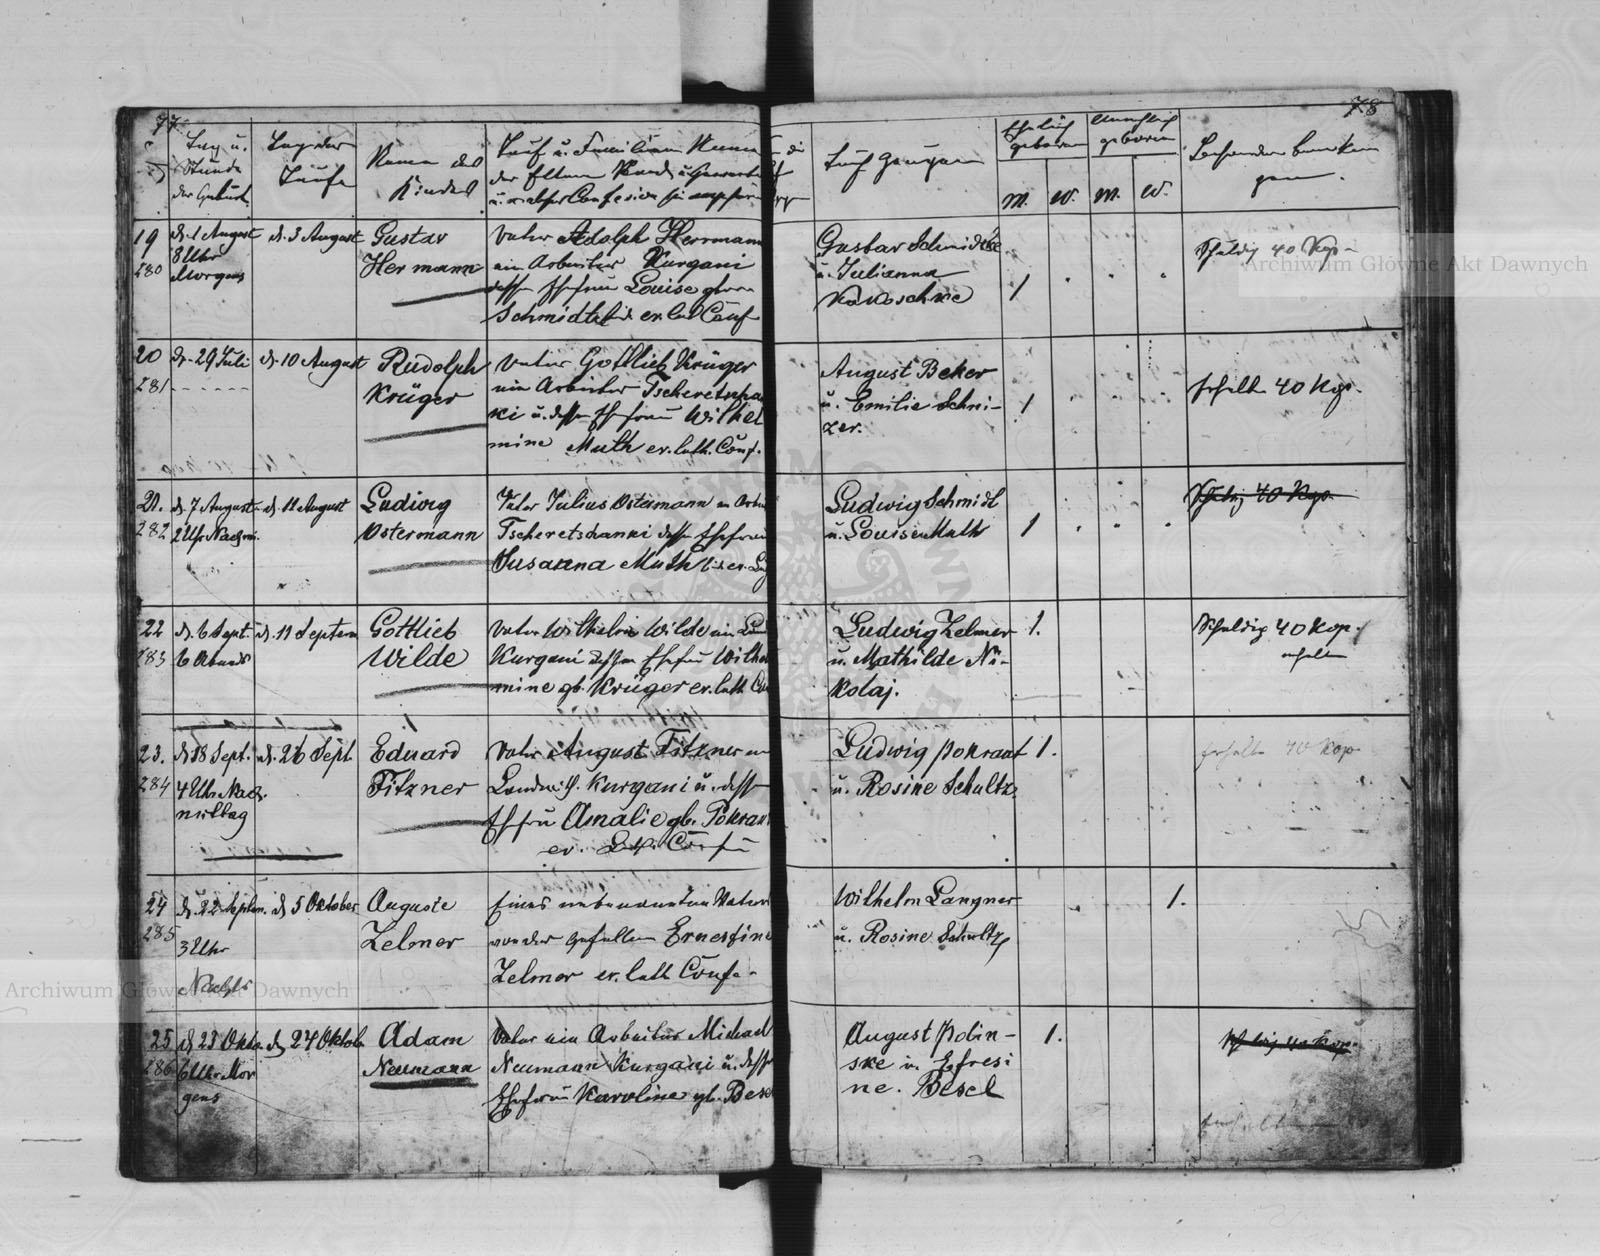 77
78
Tag u.
Stunde
der Geburt
Tag der
Taufe
Name des
Kindes
Tauf u. Familien Name
der Eltern Stand u. Gewerbe
Tauf Zeugen
Ehelich
geboren
Unehelich
geboren
m. w. m. w.
Besondere Bemerkun
gen.
19
280
d. 1 August
8 Uhr
Morgens
d. 3 August
Gustav
Hermann
Vater Adolph Herrmann
ein Arbeiter Kurgani
dessen Ehefrau Louise geborn
ev. luth Conf
Gustav
u. Julianna
1
Schuldig 40 Kop
20
281
d. 29 Juli
d. 10 August
Rudolph
Krüger
Vater Gottlieb Krüger
ein Arbeiter
ki u. dessen Ehefrau Wilhel
mine Muth ev. luth. Conf.
August Beker
u. Emilie Schni-
zer.
1
Erhalten 40 Kop.
21.
282
d. 7 August
2 Uhr Nachm.
d. 11 August
Ludwig
Ostermann
Vater Julius Ostermann
Tscheretschanki dessen Ehefrau
Susanna Muth
Ludwig Schmidt
u. Louise Muth
1
Schuldig 40 Kop
22
283
d. 6 Sept.
6 Abends
d. 11 Septem
Gottlieb
Wilde
Vater Wilhelm Wilde ein
Kurgani dessen Ehefrau Wilhel
mine gb. Krüger ev. luth
Ludwig Zelmer
u. Mathilde Ni-
kolaj.
1.
Schuldig 40 Kop.
erhalten
23.
284
d 18 Sept.
4 Uhr Nach
mittag
d. 26 Sept.
Eduard
Fitzner
Vater August Fitzner
Landwirth Kurgani u. dessen
Ehefrau Amalie gb. Pokran
ev. Luth. Conf
Ludwig Pokrant
u. Rosine Schultz.
1.
Erhalten 40 Kop
24
285
d. 22 Septem.
3 Uhr
Nachts
d 5 Oktober
Auguste
Zelmer
Eines unbenannten Vaters
von der gefallen Ernestine
Zelmer ev. luth Conf.
Wilhelm Langner
u. Rosine Schultz
1.
25
286
d 23 Okto.
6 Uhr Mor
gens
d 24 Oktob
Adam
Neumann
Vater ein Arbeiter Michael
Neumann Kurgani u. dessen
Ehefrau Karoline gb. Besel
August Polin-
ske u. Efresi
ne. Besel
1.
Archiwum Główne Akt Dawnych
Archiwum Główne Akt Dawnych